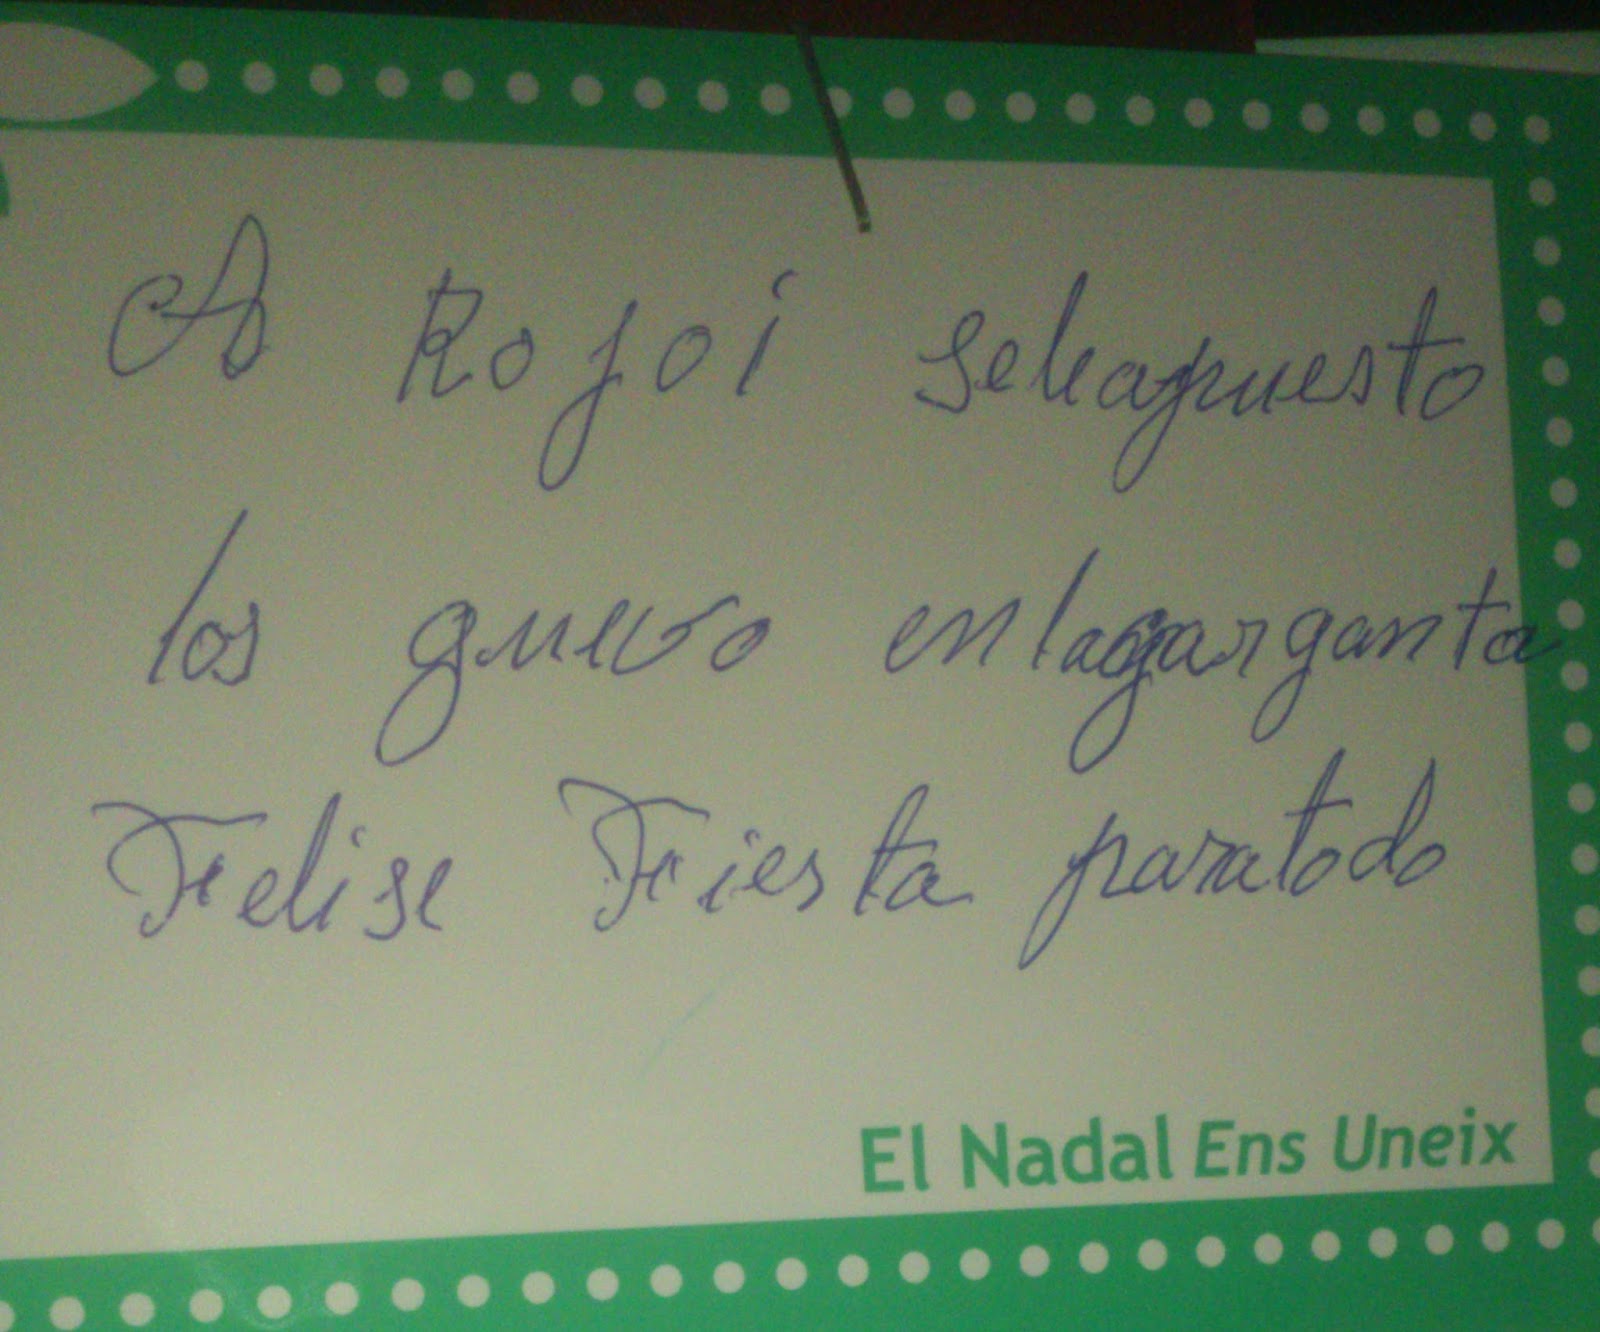 A Rojoi sehapuesto
los guevo enlagarganta
Felise Fiesta paratodo
El Nadal Ens Uneix